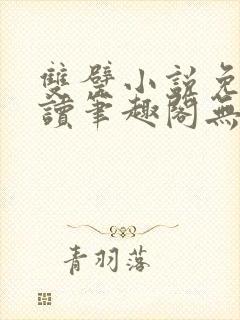 雙壁小說免
讀筆趣閣無
青羽落